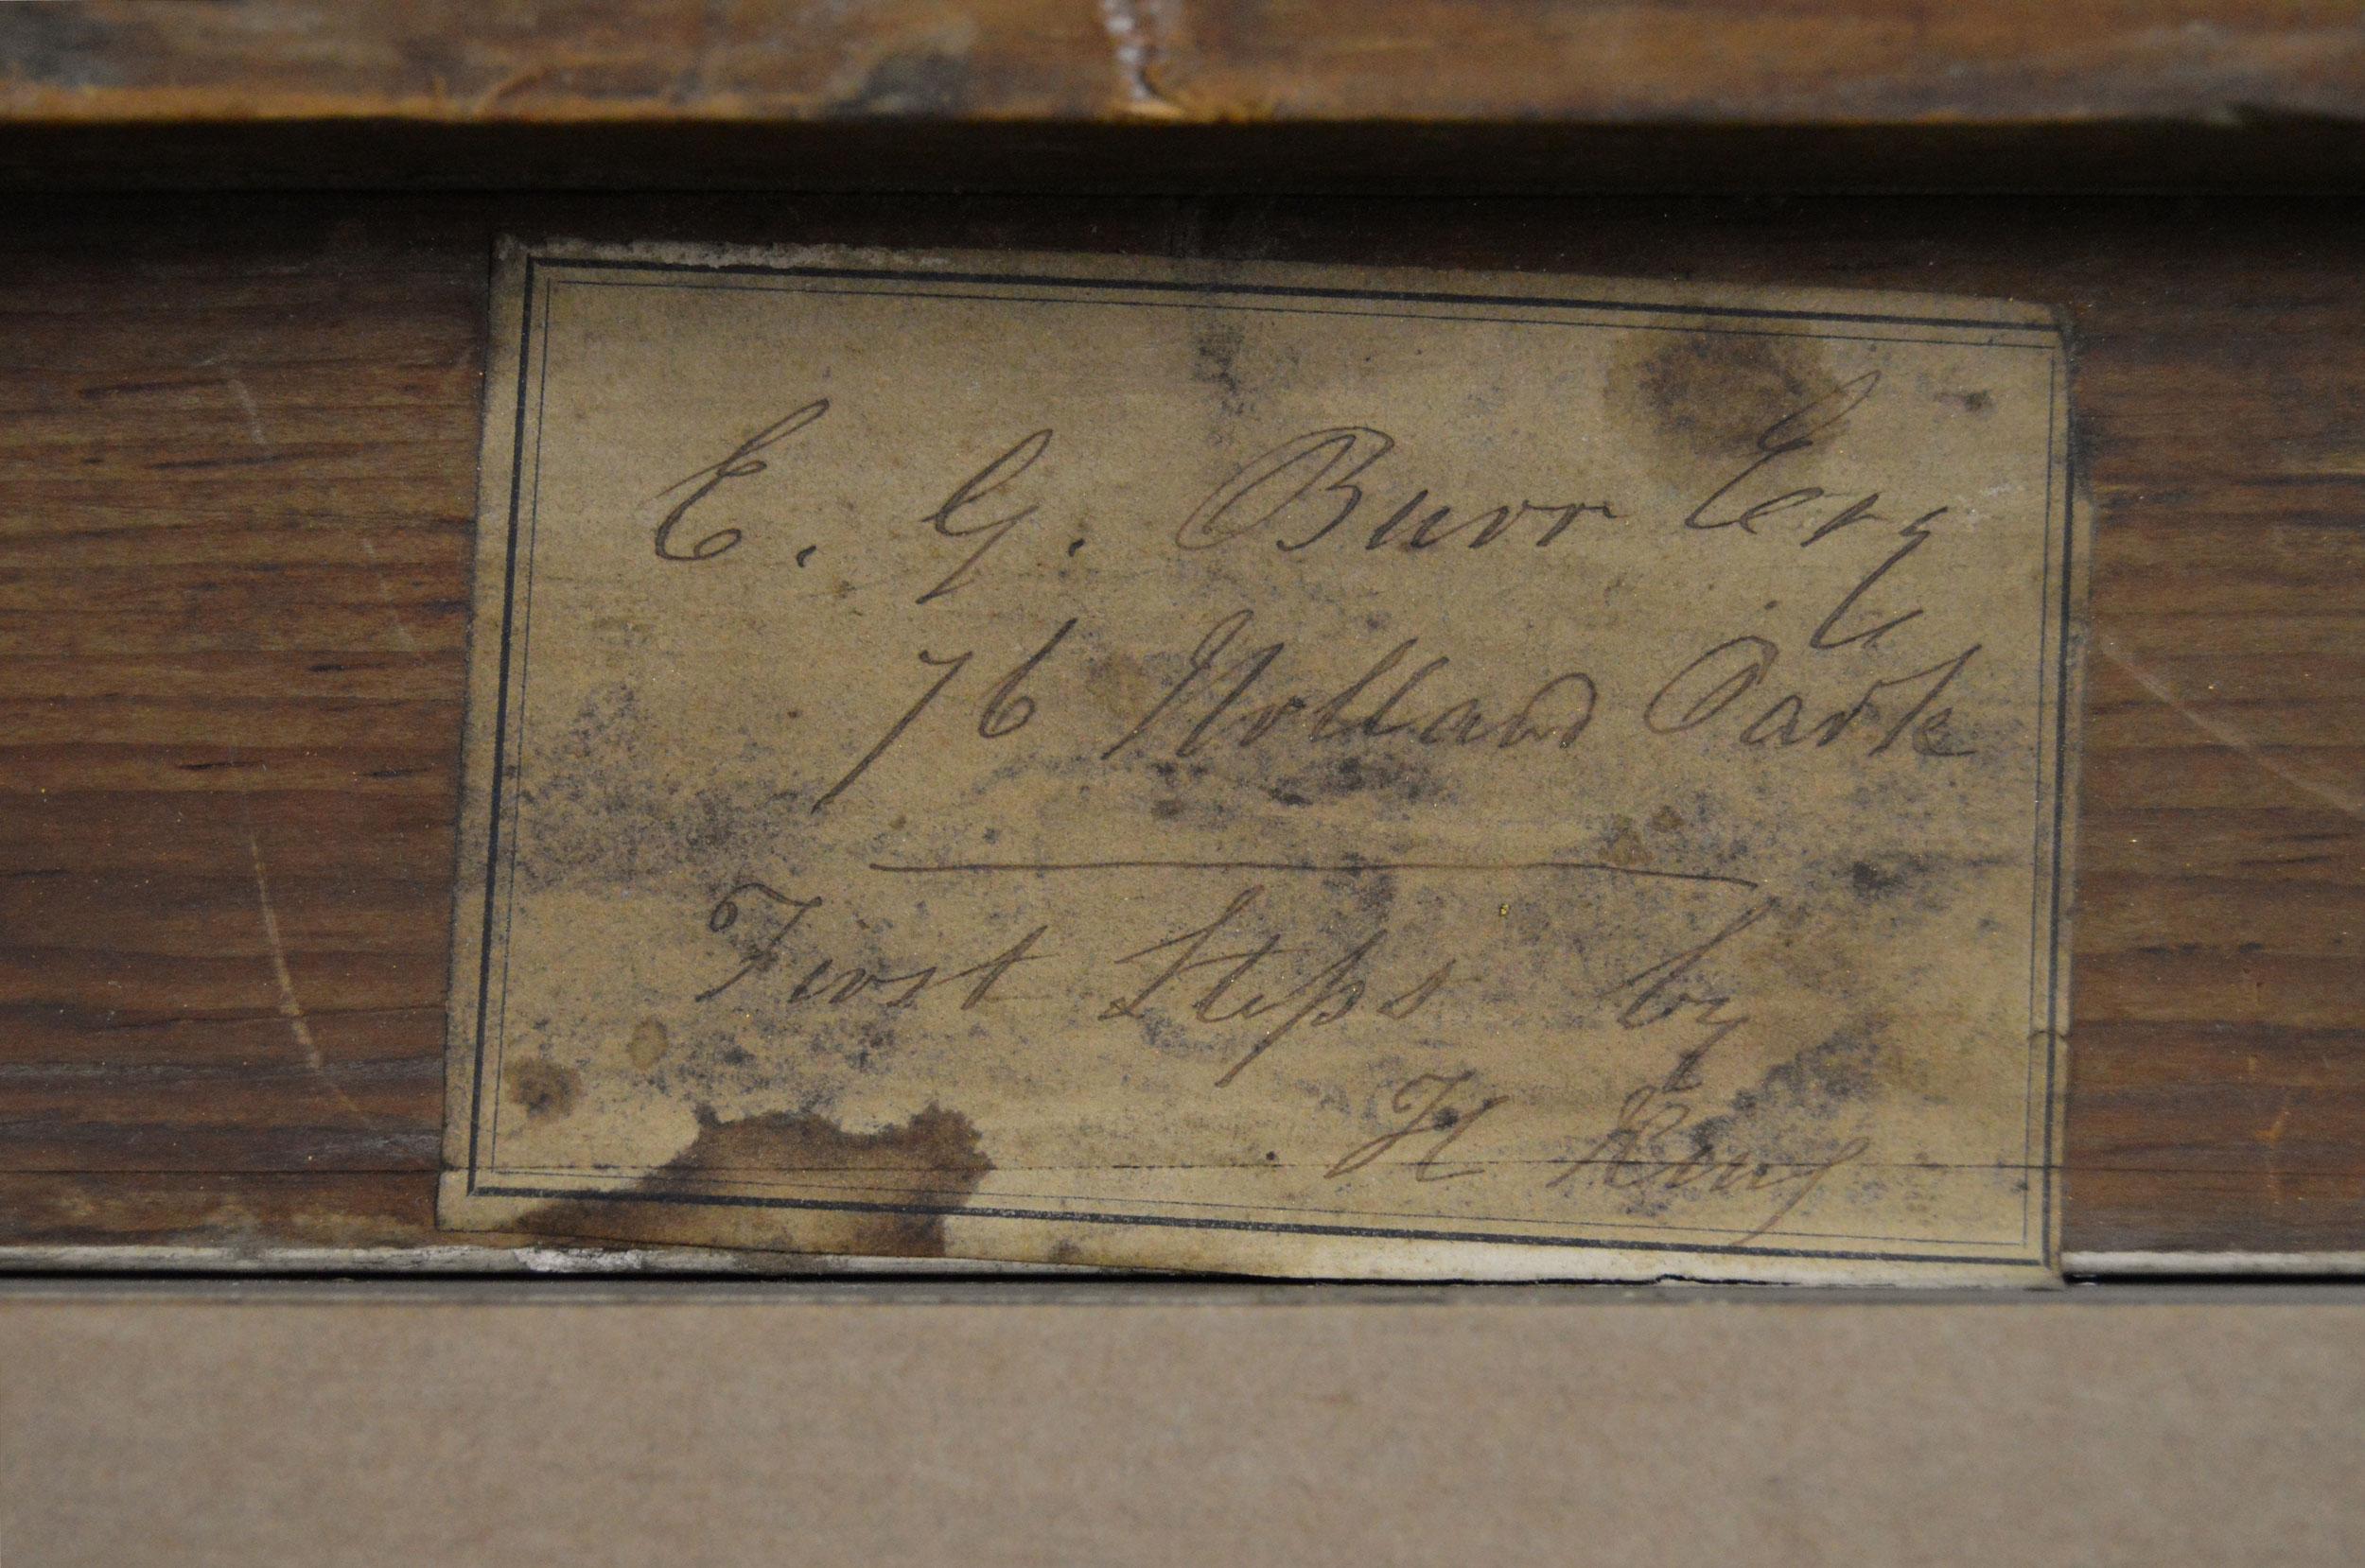 E. G. Burr Esq
76 Holland Park
First Steps by
H King